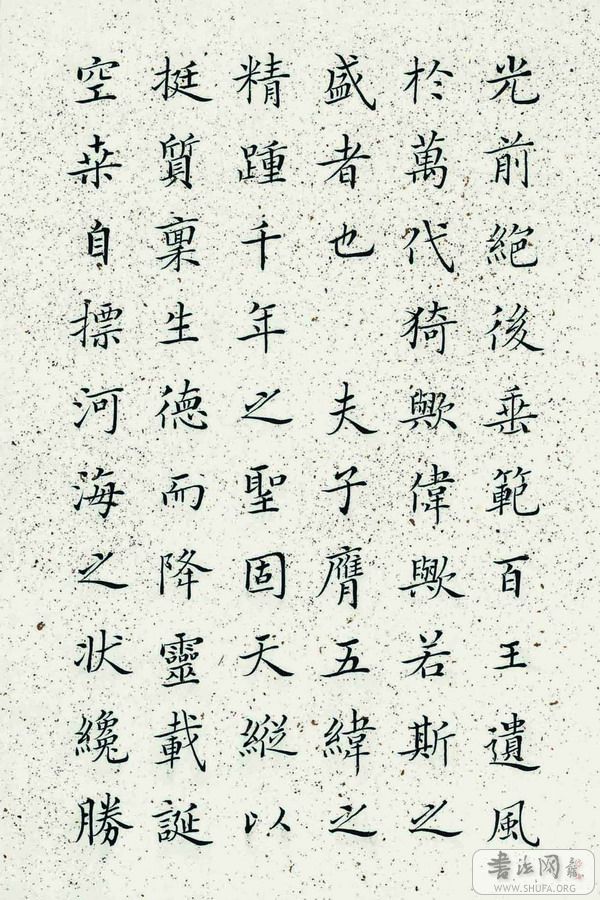 光前絕後垂範百王遺風
於萬代猗歟偉歟若斯之
盛者也 夫子膺五緯之
精踵千年之聖固天縱以
挺質稟生德而降靈載誕
空桒自摽河海之狀纔勝
书法网
WWW.SHUFA.ORG